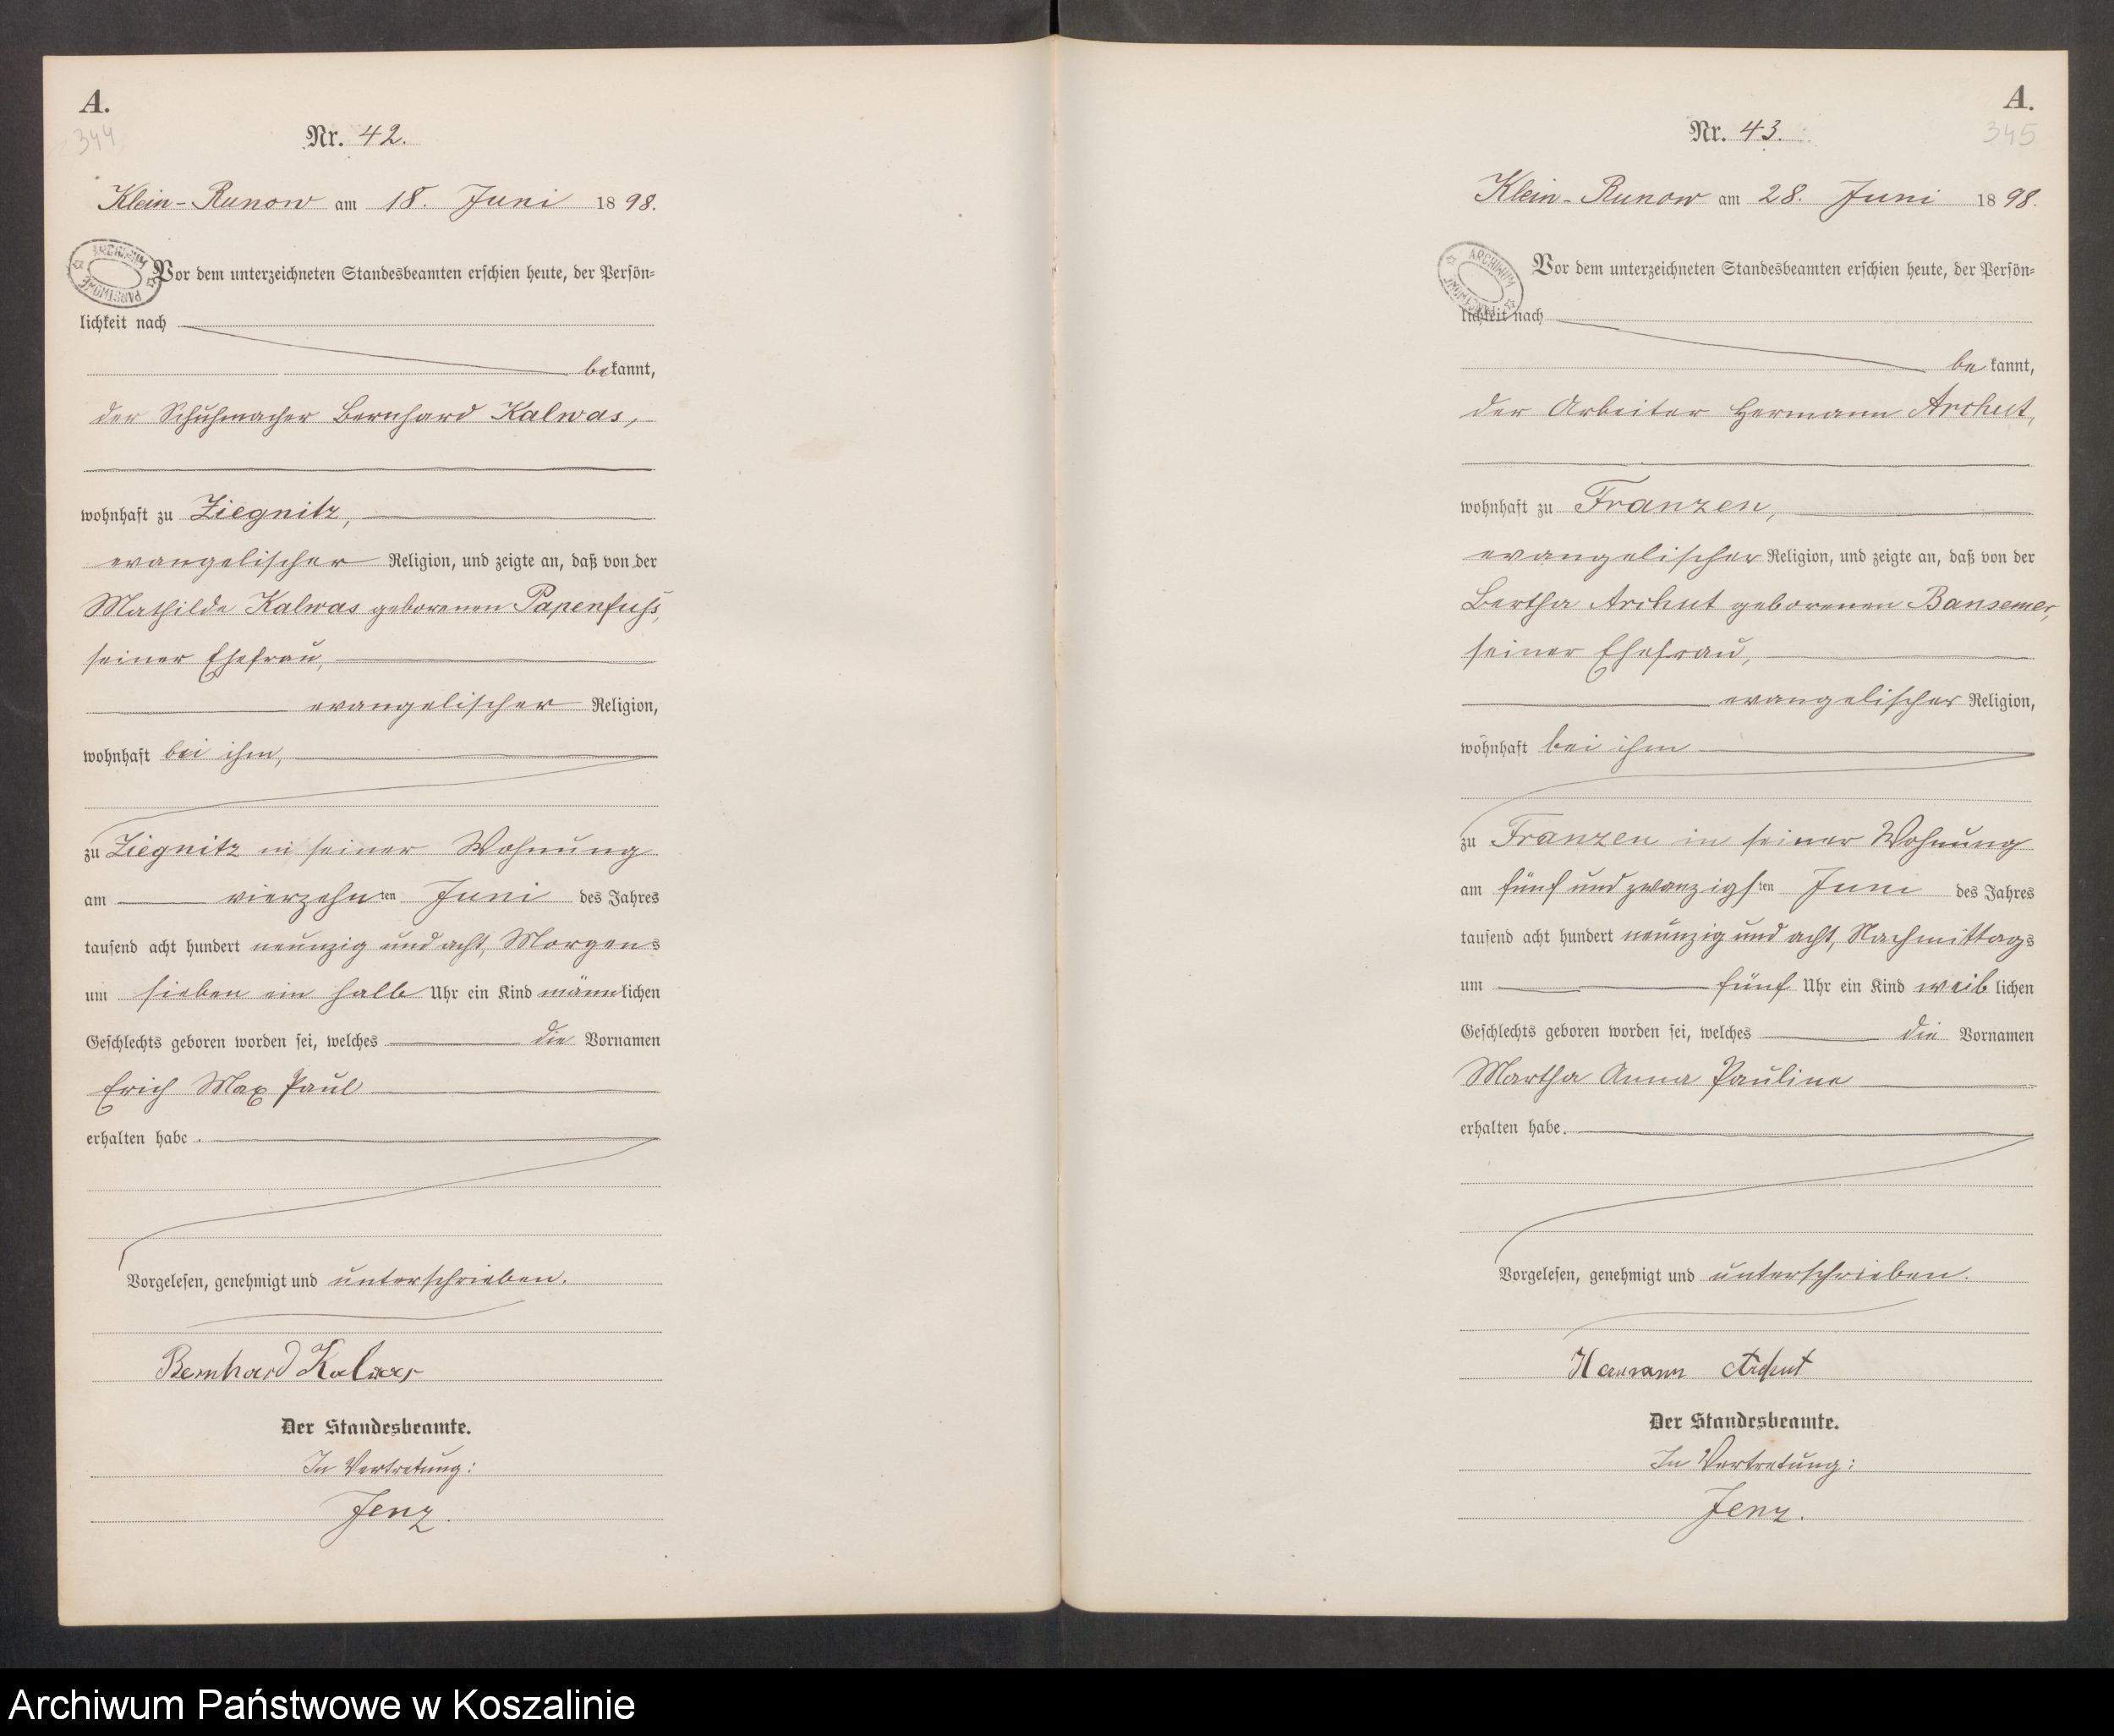 A.
344
Nr. 42.
Klein-Runow am 18. Juni 1898.
ARCHIWUM PAŃSTWOWE
Vor dem unterzeichneten Standesbeamten erschien heute, der Persön=
lichkeit nach
bekannt,
der Schuhmacher Bernhard Kalwas,
wohnhaft zu Ziegnitz,
evangelischer Religion, und zeigte an, daß von der
Mathilde Kalwas geborenen Papenfuß,
seiner Ehefrau,
evangelischer Religion,
wohnhaft bei ihm,
zu Ziegnitz in seiner Wohnung
am vierzehnten Juni des Jahres
tausend acht hundert neunzig und acht, Morgens
um sieben ein halb Uhr ein Kind männlichen
Geschlechts geboren worden sei, welches die Vornamen
Erich Max Paul
erhalten habe.
Vorgelesen, genehmigt und unterschrieben.
Bernhard Kalwas
Der Standesbeamte.
In Vertretung:
Jenz.
A.
345
Nr. 43.
Klein-Runow am 28. Juni 1898.
ARCHIWUM PAŃSTWOWE
Vor dem unterzeichneten Standesbeamten erschien heute, der Persön=
lichkeit nach
bekannt,
der Arbeiter Hermann Archut,
wohnhaft zu Franzen,
evangelischer Religion, und zeigte an, daß von der
Bertha Archut geborenen Bansemer,
seiner Ehefrau,
evangelischer Religion,
wohnhaft bei ihm
zu Franzen in seiner Wohnung
am fünf und zwanzigsten Juni des Jahres
tausend acht hundert neunzig und acht, Nachmittags
um fünf Uhr ein Kind weiblichen
Geschlechts geboren worden sei, welches die Vornamen
Martha Anna Pauline
erhalten habe.
Vorgelesen, genehmigt und unterschrieben.
Hermann Archut
Der Standesbeamte.
In Vertretung:
Jenz.
Archiwum Państwowe w Koszalinie